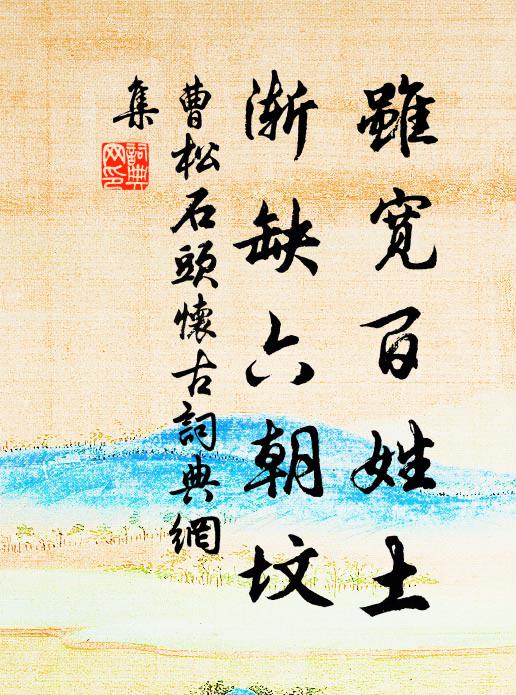 雖寬百姓土
漸缺六朝墳
曹松石頭懷古詞典網
集
詞典
网印